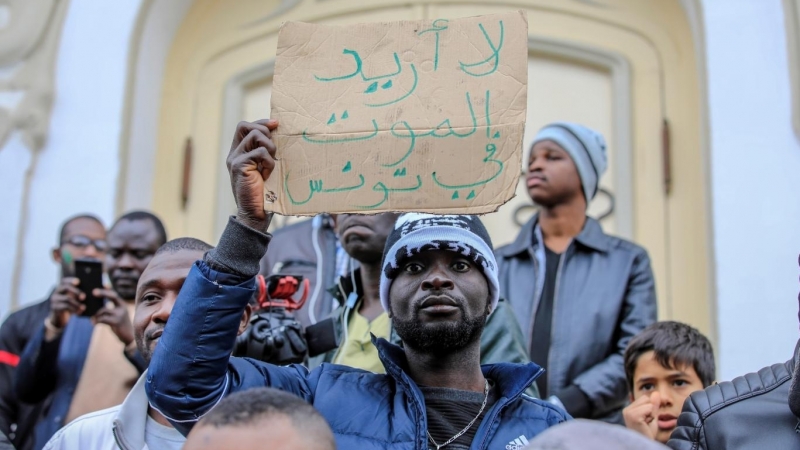 لا أريد
الموت
في تونس
adidas